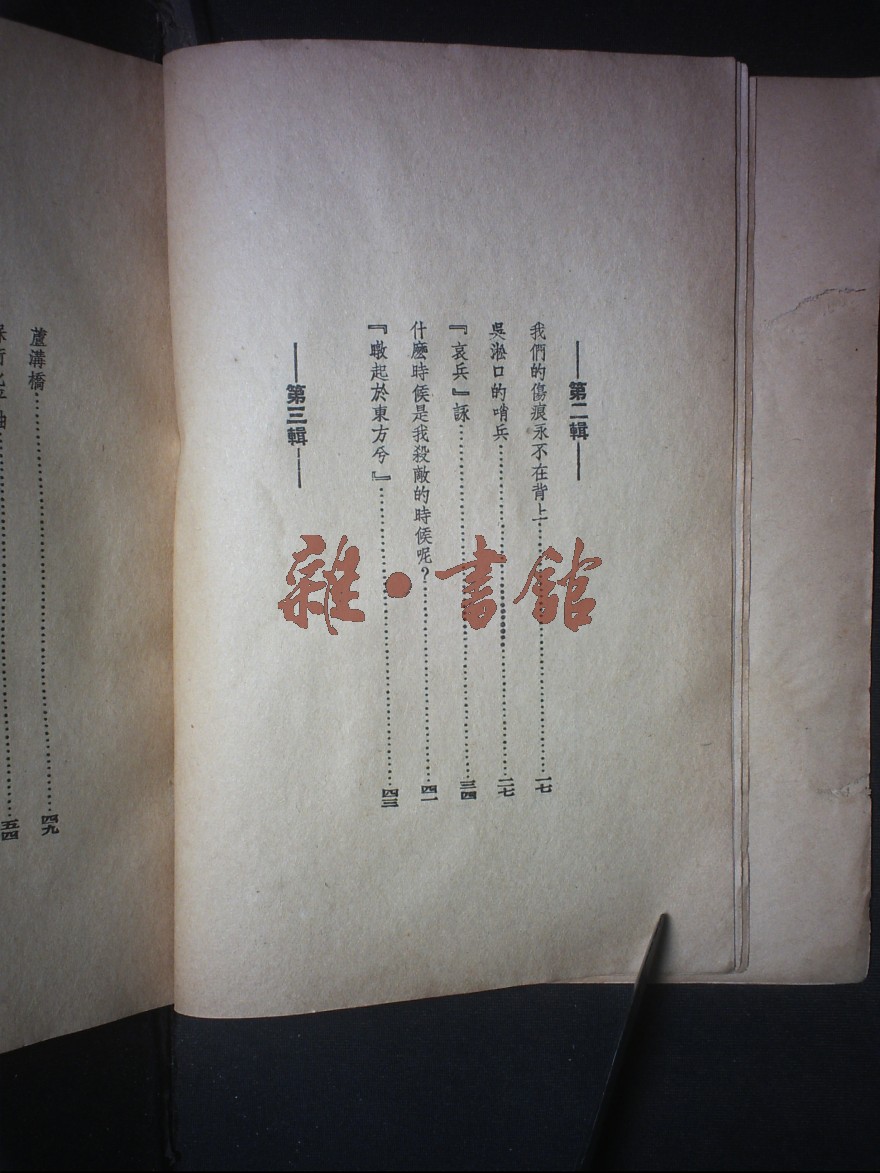 第二輯
我們的傷痕永不在背上……一七
吳淞口的哨兵……二七
『哀兵』詠……三四
什麼時候是我殺敵的時候呢？……四一
『暾起於東方兮』……四三
第三輯
蘆溝橋……四九
五四
雜·書館